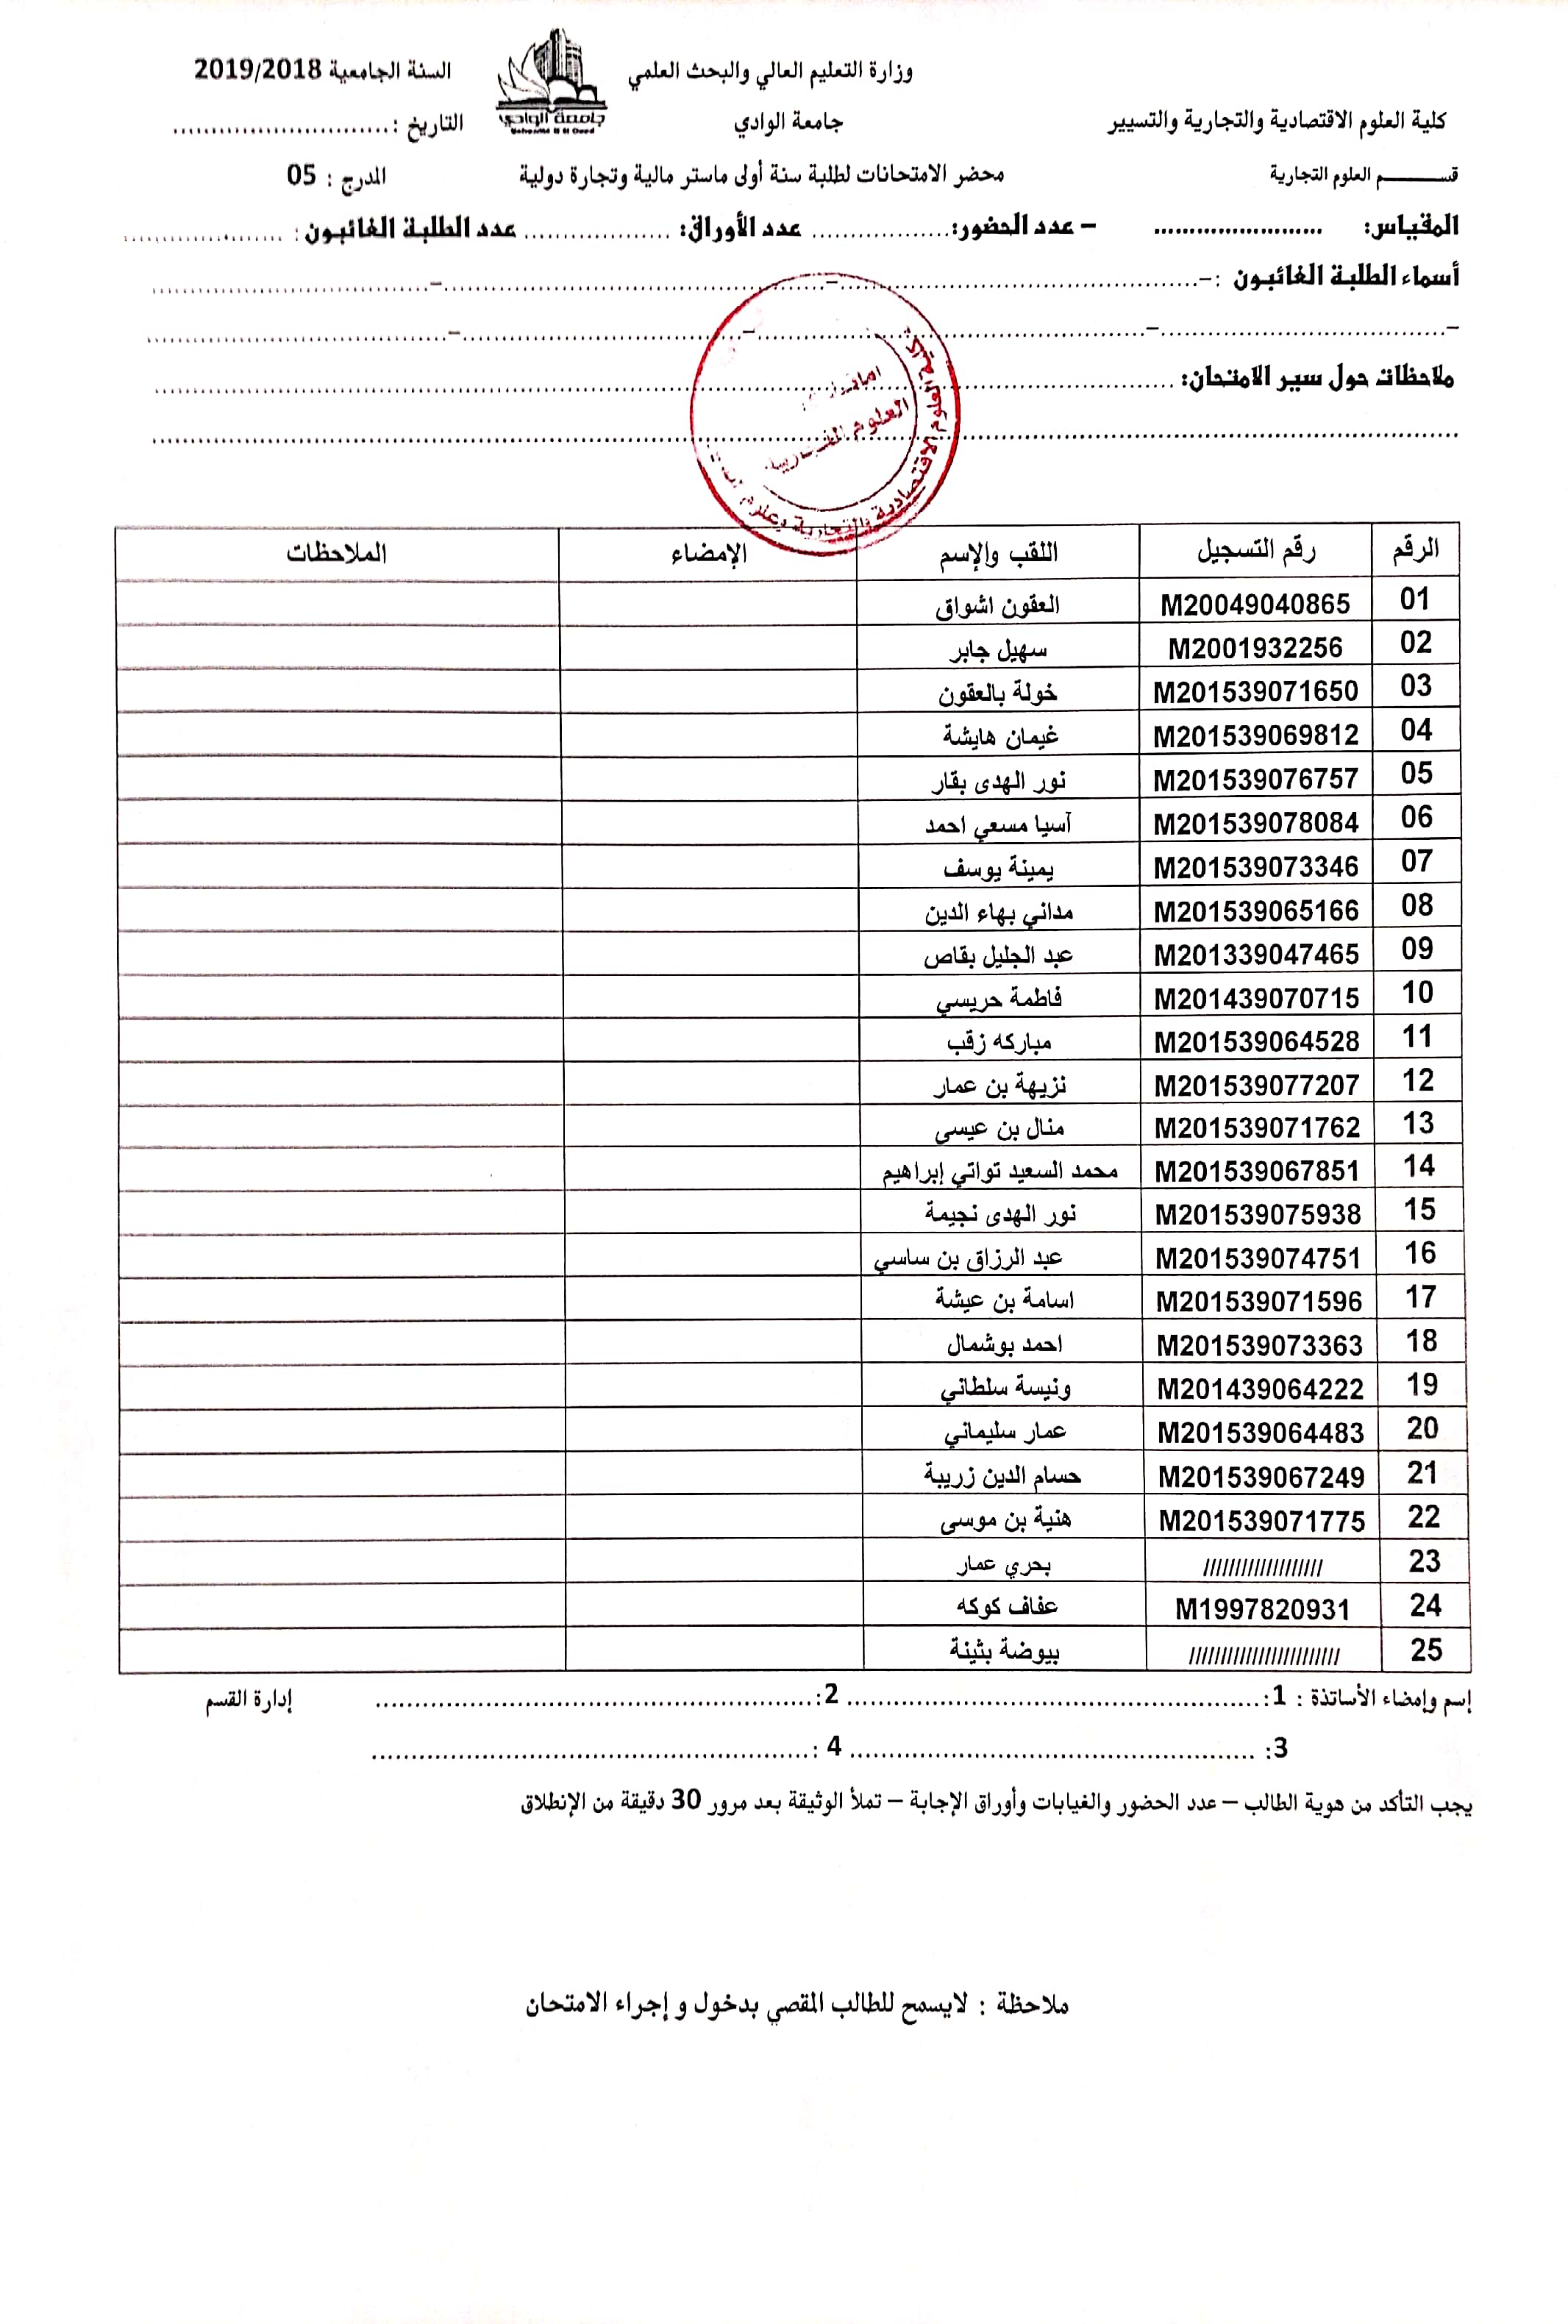 وزارة التعليم العالي والبحث العلمي
السنة الجامعية 2019/2018
كلية العلوم الاقتصادية والتجارية والتسيير
جامعة الوادي
جامعة الوادي
التاريخ :..............................
قســـــــم العلوم التجارية
محضر الامتحانات لطلبة سنة أولى ماستر مالية وتجارة دولية
المدرج : 05
المقياس: ........................ – عدد الحضور:................... عدد الأوراق: .................... عدد الطلبة الغائبون : ......................
أسماء الطلبة الغائبون :–..................................................–..................................................–......................................
–........................................–........................................–........................................–........................................
ملاحظات حول سير الامتحان: ................................................................................
................................................................................
كلية العلوم الاقتصادية والتجارية وعلوم
العلوم التجارية
الرقم رقم التسجيل اللقب والإسم الإمضاء الملاحظات
01 M20049040865 العقون اشواق
02 M2001932256 سهيل جابر
03 M201539071650 خولة بالعقون
04 M201539069812 غيمان هايشة
05 M201539076757 نور الهدى بقار
06 M201539078084 آسيا مسعي احمد
07 M201539073346 يمينة يوسف
08 M201539065166 مداني بهاء الدين
09 M201339047465 عبد الجليل بقاص
10 M201439070715 فاطمة حريسي
11 M201539064528 مباركه زقب
12 M201539077207 نزيهة بن عمار
13 M201539071762 منال بن عيسى
14 M201539067851 محمد السعيد تواتي إبراهيم
15 M201539075938 نور الهدى نجيمة
16 M201539074751 عبد الرزاق بن ساسي
17 M201539071596 اسامة بن عيشة
18 M201539073363 احمد بوشمال
19 M201439064222 ونيسة سلطاني
20 M201539064483 عمار سليماني
21 M201539067249 حسام الدين زريبة
22 M201539071775 هنية بن موسى
23 /////////////////// بحري عمار
24 M1997820931 عفاف كوكه
25 //////////////////////// بيوضة بثينة
إسم وإمضاء الأساتذة : 1:.................................................. 2:.................................................. إدارة القسم
3: .................................................. 4 :..................................................
يجب التأكد من هوية الطالب – عدد الحضور والغيابات وأوراق الإجابة – تملأ الوثيقة بعد مرور 30 دقيقة من الإنطلاق
ملاحظة : لايسمح للطالب المقصي بدخول و إجراء الامتحان